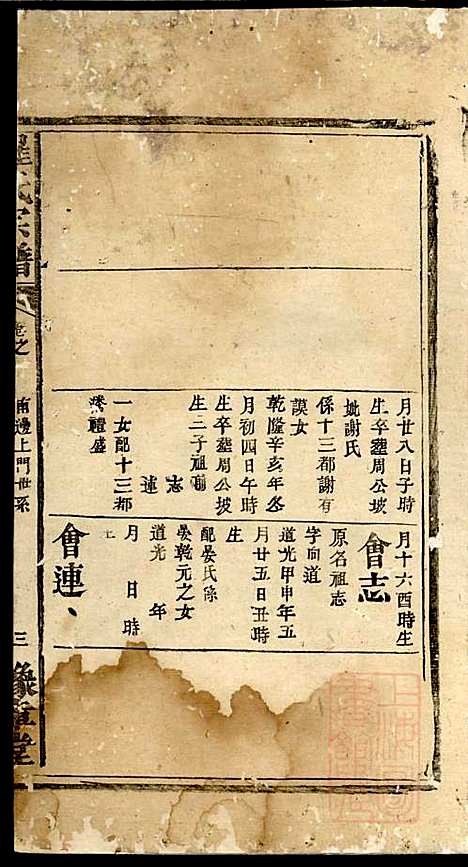 月廿八日子時
生卒塟周公坡
妣謝氏
係十三都謝有
謨女
乾隆辛亥年冬
月初四日午時
生卒塟周公坡
生二子祖
志
連
一女配十三都
禮盛
月十六酉時生
會志
原名祖志
字向道
道光甲申年五
月廿五日丑時
生
配晏氏係
晏乾元之女
道光　年
月　日時
生
會連、
氏宗譜
卷之
南邊上門世系
三
豫章堂